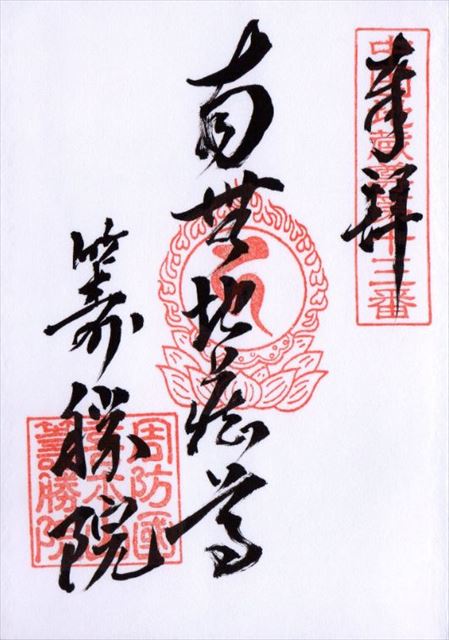 奉拝
中国地蔵尊第十三番
南無地蔵尊
籌勝院
周防國
籌勝院